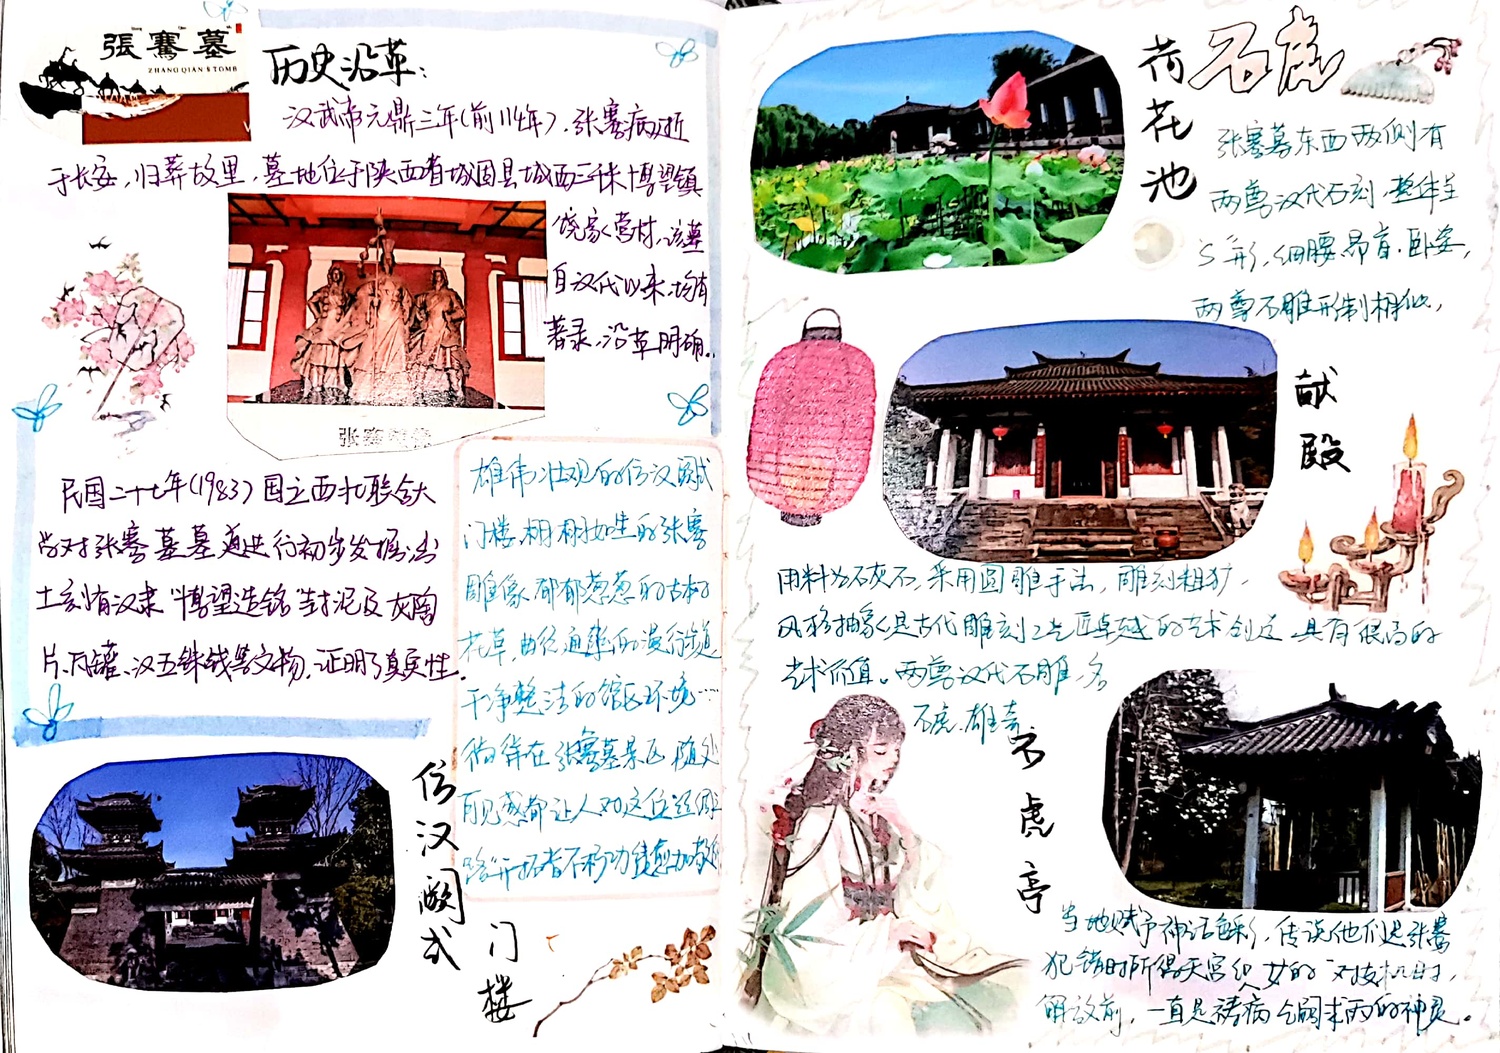 張騫墓
ZHANG QIAN'S TOMB
历史沿革：
汉武帝元鼎三年（前114年），张骞病逝
于长安，归葬故里，墓地位于陕西省城固县城西三千米博望镇
饶家营村，该墓
自汉代以来，均有
著录，沿革明确。
民国二十七年（1983）国立西北联合大
学对张骞墓墓道进行初步发掘，出
土刻有汉隶“博望造铭”封泥及灰陶
片、瓦罐、汉五铢钱等文物，证明了真实性。
雄伟壮观的仿汉阙式
门楼，栩栩如生的张骞
雕像，郁郁葱葱的古树
花草，曲径通幽的漫行步道
干净整洁的馆区环境……
徜徉在张骞墓景区，随处
可见感都让人对这位丝绸
路开拓者不朽功绩愈加敬
仿汉阙式
门楼
荷花池
石虎
张骞墓东西两侧有
两尊汉代石刻，整体呈
S形，细腰，昂首，卧姿，
两尊石雕形制相似，
献殿
用料为石灰石，采用圆雕手法，雕刻粗犷，
风格抽象，是古代雕刻工艺匠卓越的艺术创造，具有很高的
艺术价值。两尊汉代石雕，名
石虎，雄奇
石虎亭
当地赋予神话色彩，传说他们是张骞
犯错时所得天宫织女的“对支机石”，
解放前，一直是祷病乞嗣求雨的神灵。